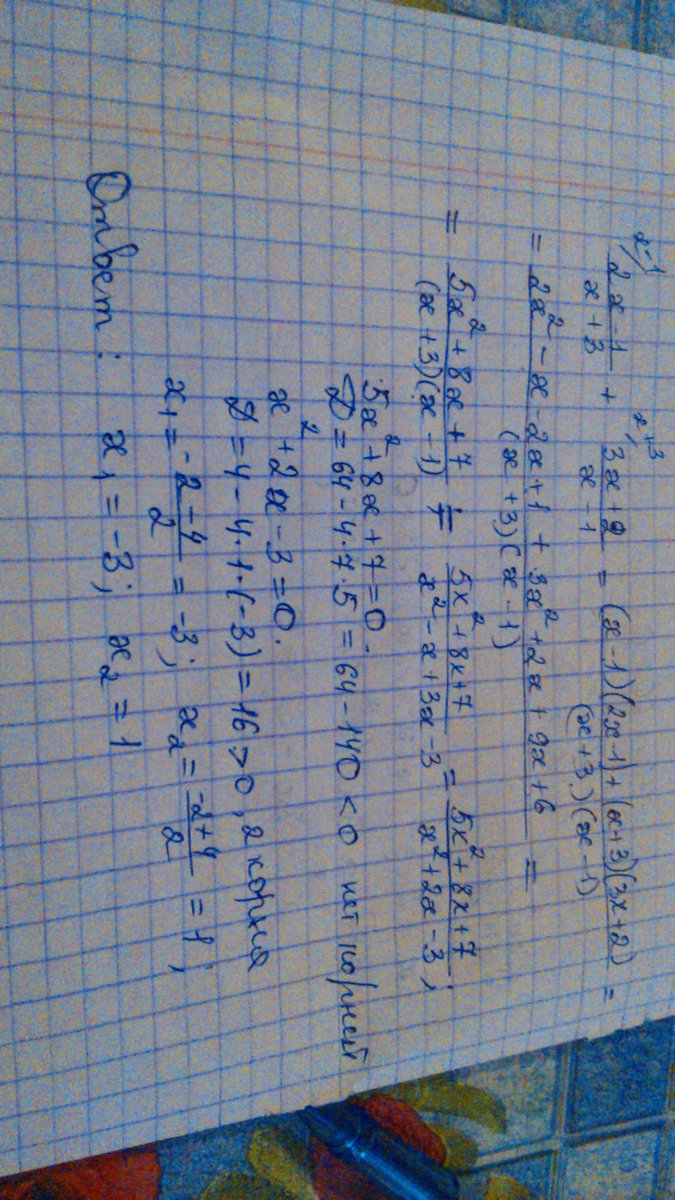 x-1/ (2x-1)/(x+3) + x+3/ (3x+2)/(x-1) = ((x-1)(2x-1)+(x+3)(3x+2))/((x+3)(x-1)) =
= (2x² - x - 2x + 1 + 3x² + 2x + 9x + 6)/((x+3)(x-1)) =
= (5x² + 8x + 7)/((x+3)(x-1)) = (5x² + 8x + 7)/(x² - x + 3x - 3) = (5x² + 8x + 7)/(x² + 2x - 3);
5x² + 8x + 7 = 0.
D = 64 - 4·7·5 = 64 - 140 < 0 нет корней
x² + 2x - 3 = 0.
D = 4 - 4·1·(-3) = 16 > 0, 2 корня
x₁ = (-2-4)/2 = -3; x₂ = (-2+4)/2 = 1;
Ответ: x₁ = -3; x₂ = 1